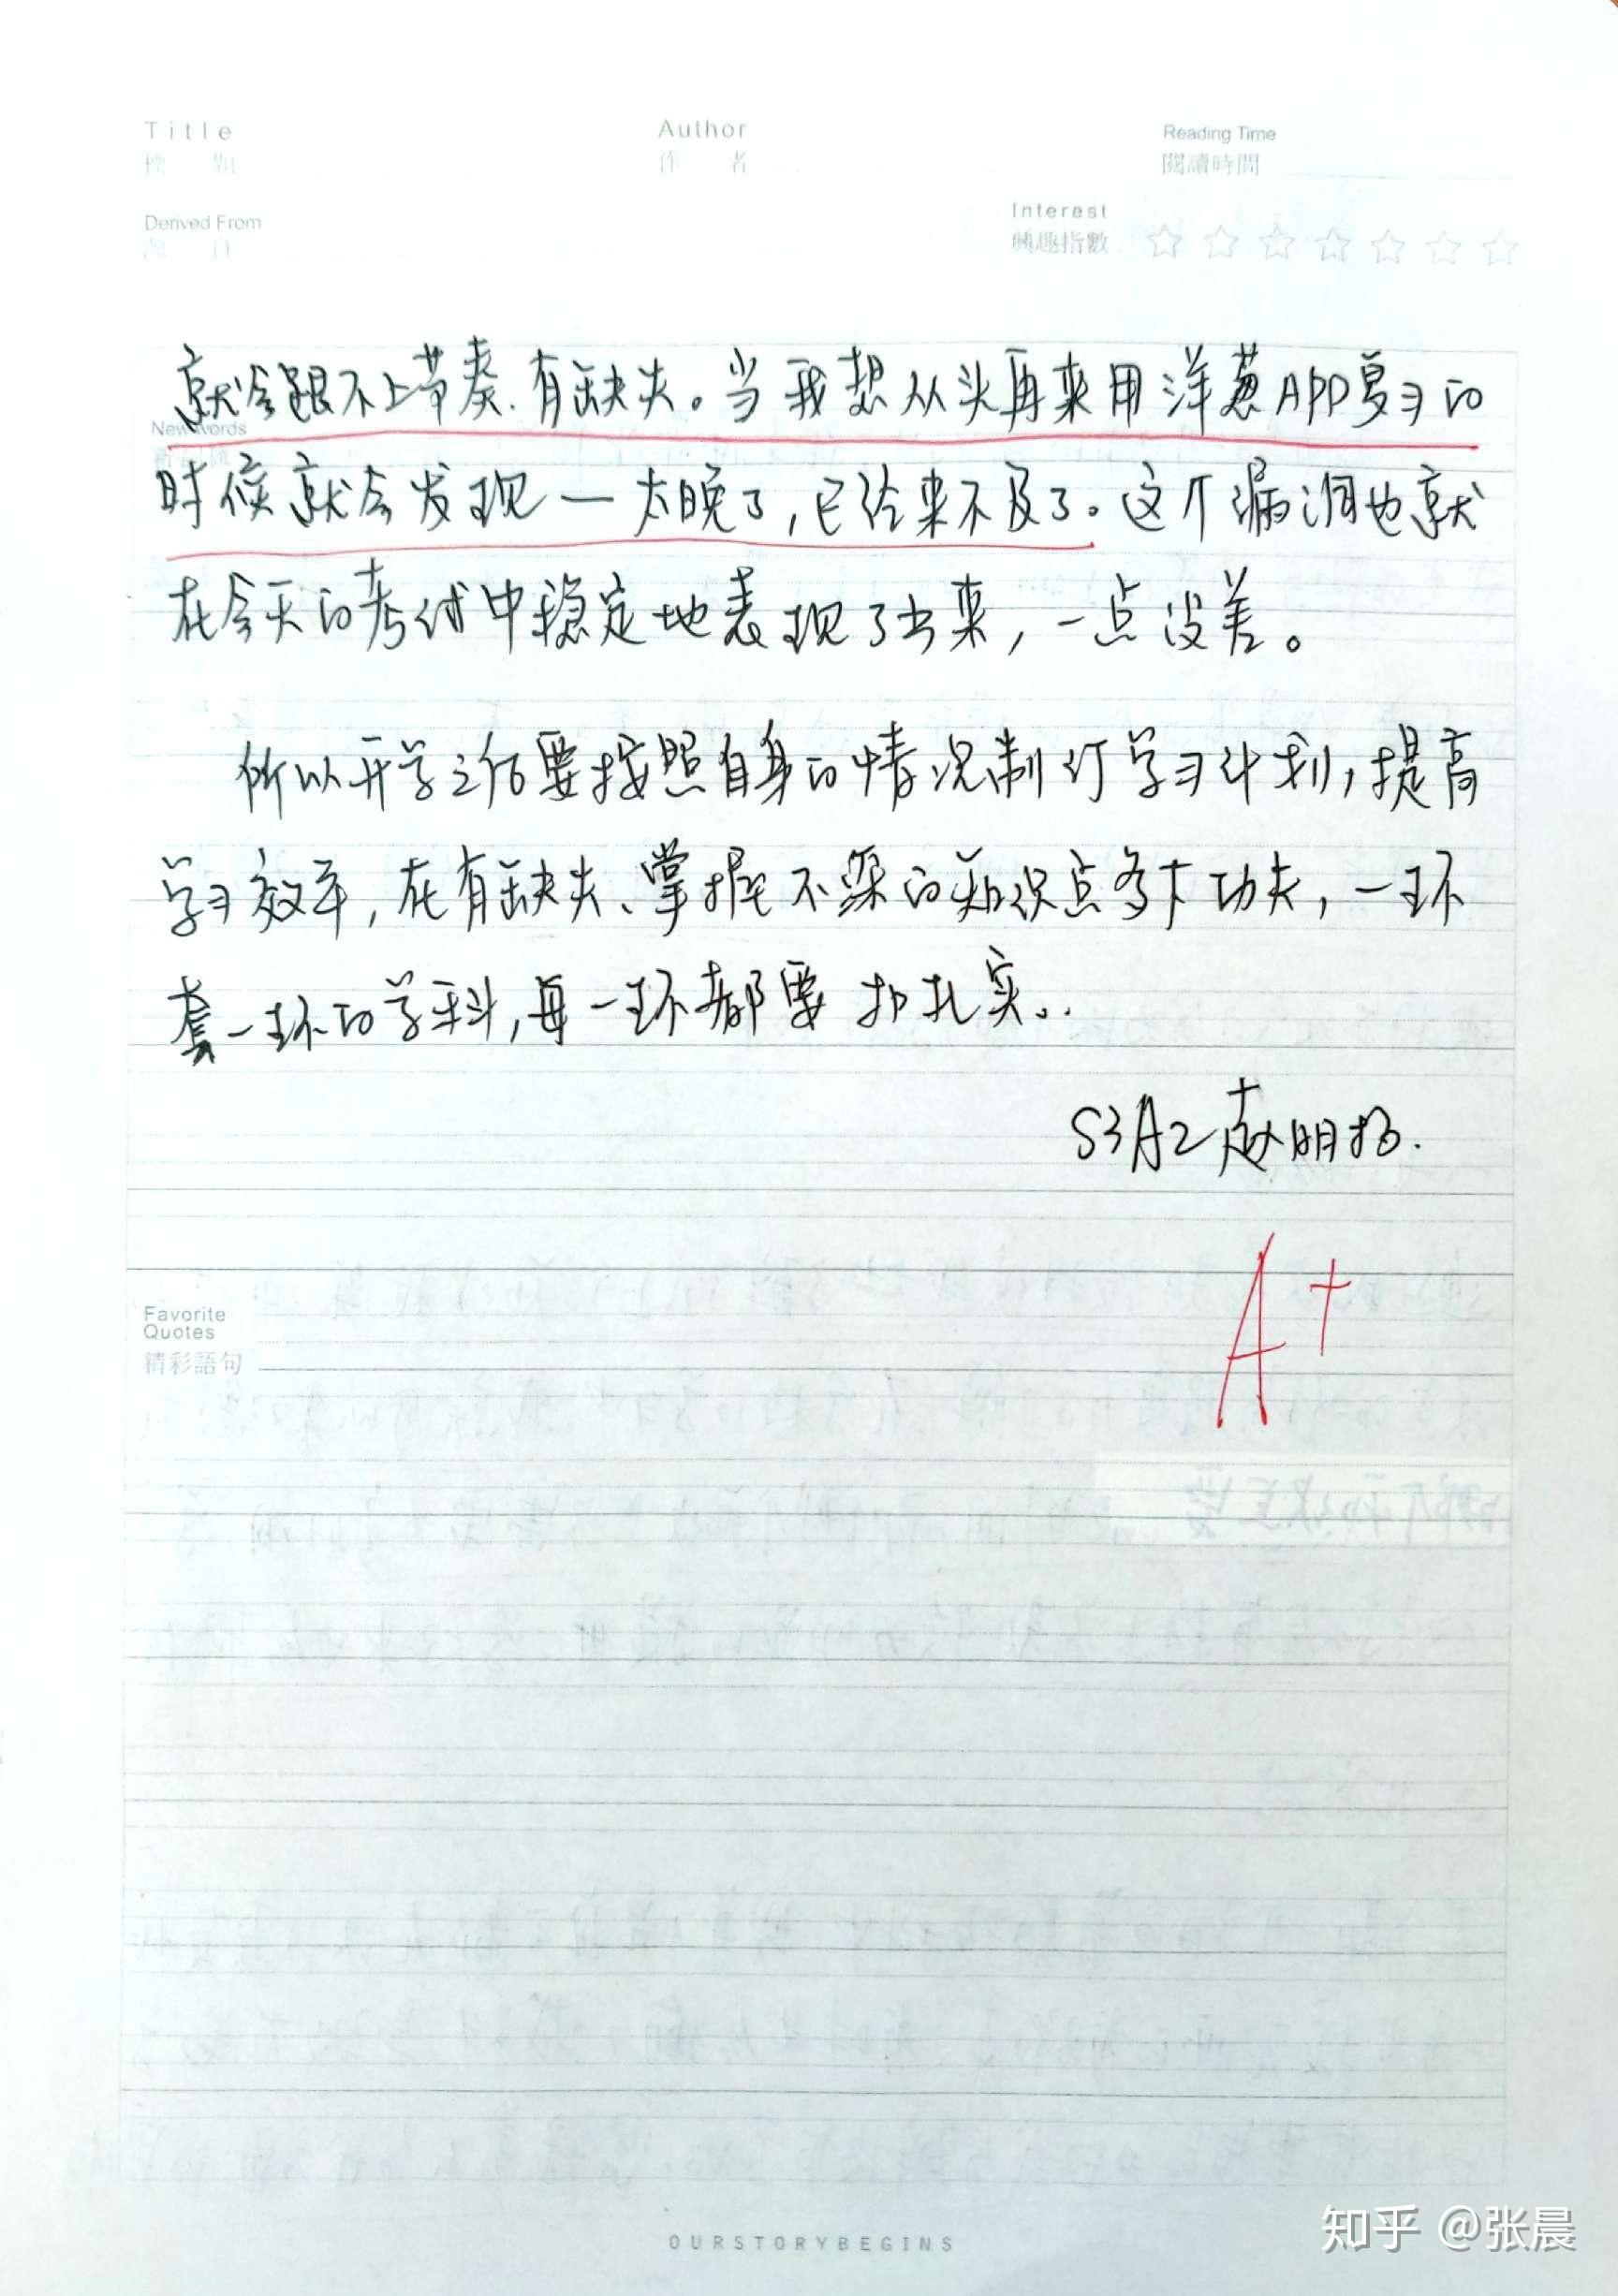 Title
標 題
Author
作 者
Reading Time
閱讀時間
Derived From
源 自
Interest
興趣指數
就会跟不上节奏.有缺失。当我想从头再来用洋葱APP复习的
New Words
时候就会发现一太晚了,已经来不及了。这个漏洞也就
在今天的考试中稳定地表现了出来,一点没差。
所以开学之后要按照自身的情况制订学习计划,提高
学习效率,在有缺失、掌握不深的知识点多下功夫,一环
套一环的学科,每一环都要扣扎实..
S3A2赵明扬.
A+
Favorite
Quotes
精彩語句
OURSTORYBEGINS
知乎 @张晨